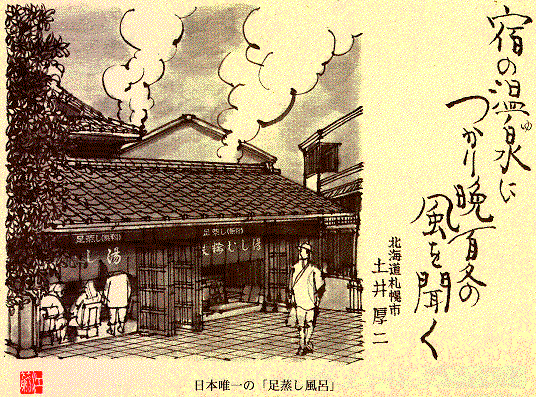 宿の温泉に
ゆ
つかり晩夏の
風を聞く
北海道札幌市
土井 厚二
足蒸し
し湯
足蒸し
むし湯
日本唯一の「足蒸し風呂」